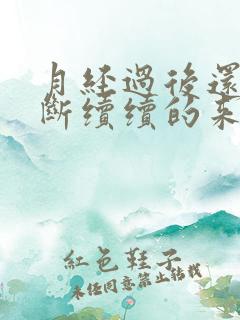 月經過後還
斷續續的來
紅色鞋子
未經同意禁止轉載